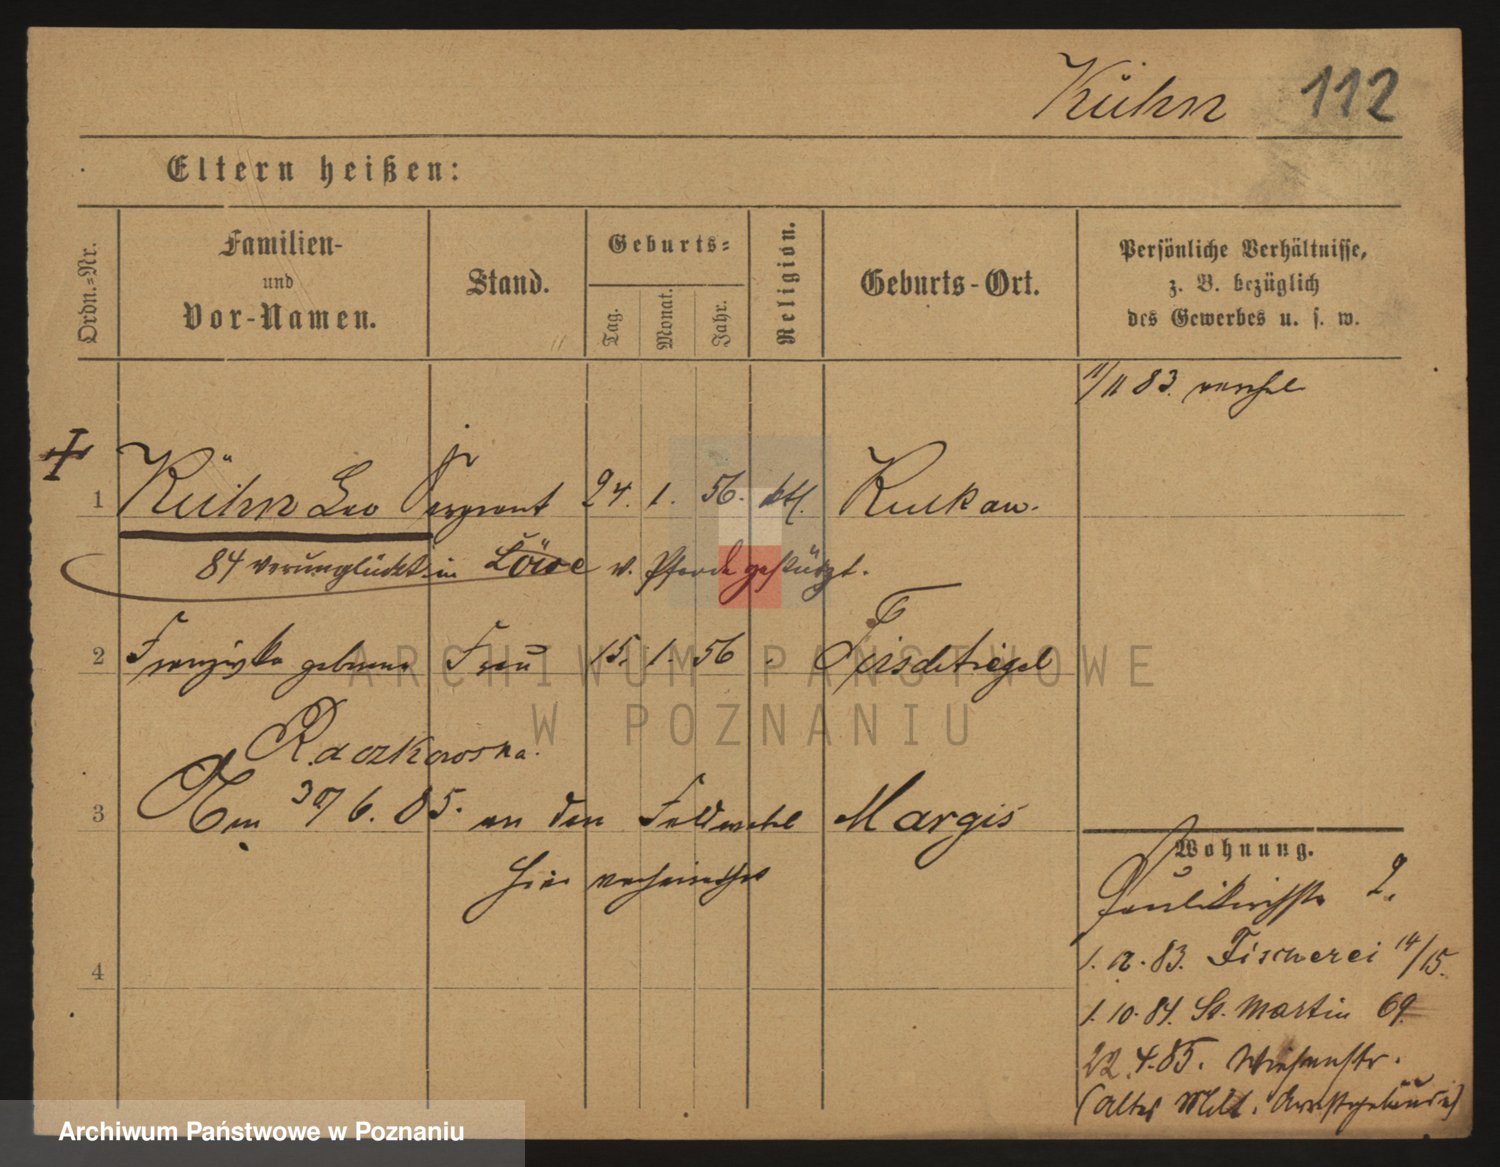 Kühn 112
Eltern heißen:
Ordn.-Nr.
Familien-
und
Vor-Namen.
Stand.
Geburts-
Tag.
Monat.
Jahr.
Religion.
Geburts-Ort.
Persönliche Verhältnisse,
z. B. bezüglich
des Gewerbes u. s. w.
11/11 83.
1 Kühn Leo Sergeant 24. 1. 56. ktl. Kulkau.
84 verunglückt in Löwe v. Pferde gestürzt.
2 Franziska geborene Frau 15. 1. 56 Tirschtiegel
Raczkowska.
3 Am 30/6. 85. an den Feldwebel Margis
hier verheirathet
4
Wohnung.
Paulikirchstr 2.
1. 12. 83. Fischerei 14/15.
1. 10. 84. St. Martin 69.
22. 4. 85. Wiesenstr.
(altes Milit. Arrestgebäude)
ARCHIWUM PAŃSTWOWE
W POZNANIU
Archiwum Państwowe w Poznaniu